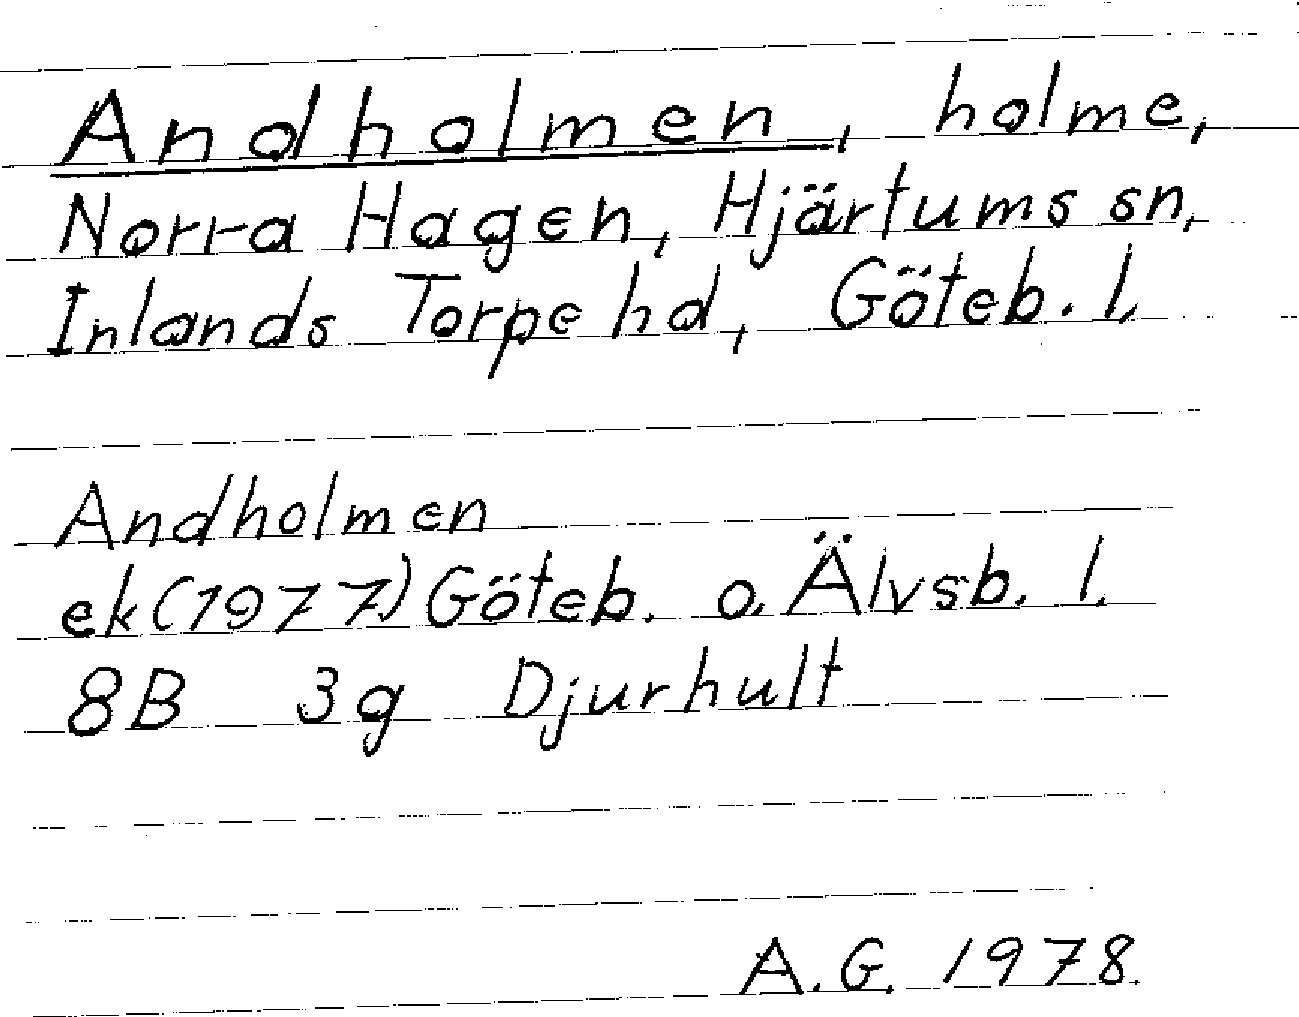 Andholmen, holme,
Norra Hagen, Hjärtums sn,
Inlands Torpe hd, Göteb. l.
Andholmen
ek (1977) Göteb. o. Älvsb. l.
8B 3g Djurhult
A.G. 1978.